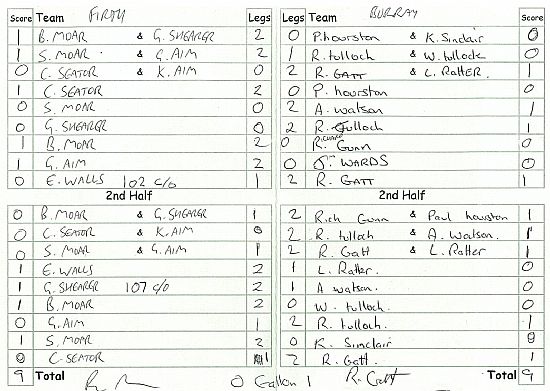 Score Team FIRTH Legs Legs Team BURRAY Score
1 B. MOAR & G. SHEARER 2 0 P. hourston & K. Sinclair 0
1 S. MOAR & G. AIM 2 1 R. tulloch & W. tullock 0
0 C. SEATOR & K. AIM 0 2 R. GATT & L. RATTER. 1
1 C. SEATOR 2 0 P. hourston 0
0 S. MOAR 0 2 A. watson 1
0 G. SHEARER 0 2 R. Tulloch 1
1 B. MOAR 2 0 R. Gunn 0
1 G. AIM 2 0 WARDS 0
0 E. WALLS 102 c/o 1 2 R. GATT 1
2nd Half 2nd Half
0 B. MOAR & G. SHEARER 1 2 Rich Gunn & Paul hourston 1
0 C. SEATOR & K. AIM 0 2 R. tulloch & A. Watson. 1
0 S. MOAR & G. AIM 1 2 R. Gatt & L. Ratter 1
1 E. WALLS 2 1 L. Ratter. 0
1 G. SHEARER 107 c/o 2 1 A watson. 0
1 B. MOAR 2 0 W. tulloch. 0
0 G. AIM 1 2 R. tulloch. 1
1 S. MOAR 2 0 K. Sinclair 0
0 C. SEATOR 1 2 R. Gatt. 1
9 Total 0 Gallon 1 R. Gatt Total 9